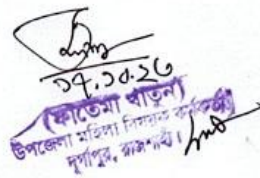 ১৭.১০.২৩
(ফাতেমা খাতুন)
উপজেলা মহিলা বিষয়ক কর্মকর্তা
দুর্গাপুর, রাজশাহী।